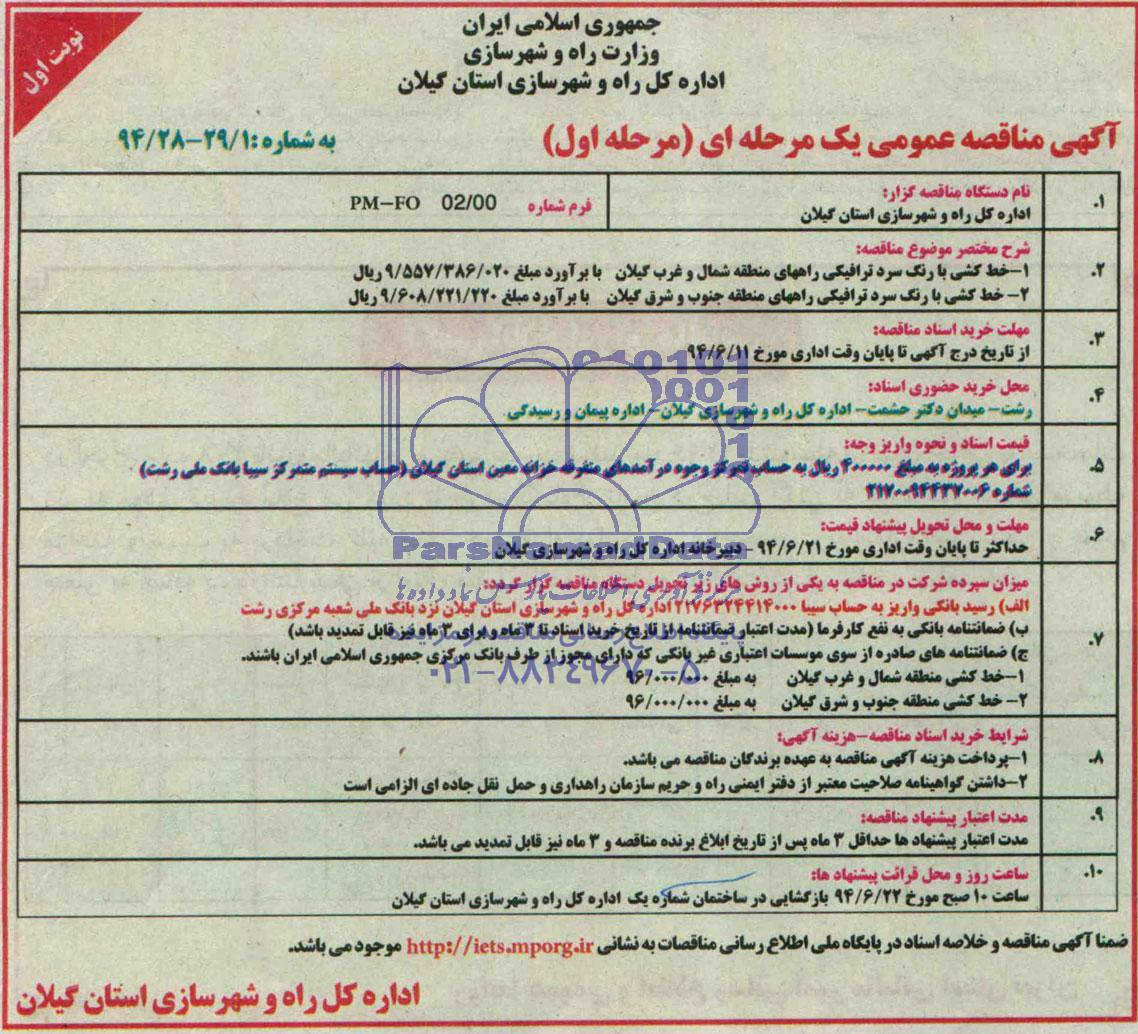 جمهوری اسلامی ایران
وزارت راه و شهرسازی
اداره کل راه و شهرسازی استان گیلان
نوبت اول
آگهی مناقصه عمومی یک مرحله ای (مرحله اول)
به شماره: ۹۴/۲۸-۲۹/۱
۱. نام دستگاه مناقصه گزار:
اداره کل راه و شهرسازی استان گیلان
فرم شماره PM-FO 02/00
۲. شرح مختصر موضوع مناقصه:
۱-خط کشی با رنگ سرد ترافیکی راههای منطقه شمال و غرب گیلان با برآورد مبلغ ۹/۵۵۷/۳۸۶/۰۲۰ ریال
۲- خط کشی با رنگ سرد ترافیکی راههای منطقه جنوب و شرق گیلان با برآورد مبلغ ۹/۶۰۸/۲۲۱/۲۲۰ ریال
۳. مهلت خرید اسناد مناقصه:
از تاریخ درج آگهی تا پایان وقت اداری مورخ ۹۴/۶/۱۱
۴. محل خرید حضوری اسناد:
رشت- میدان دکتر حشمت- اداره کل راه و شهرسازی گیلان- اداره پیمان و رسیدگی
۵. قیمت اسناد و نحوه واریز وجه:
برای هر پروژه به مبلغ ۴۰۰۰۰۰ ریال به حساب تمرکز وجوه درآمدهای متفرقه خزانه معین استان گیلان (حساب سیستم متمرکز سیبا بانک ملی رشت)
شماره ۲۱۷۰۰۹۴۴۳۷۰۰۶
۶. مهلت و محل تحویل پیشنهاد قیمت:
حداکثر تا پایان وقت اداری مورخ ۹۴/۶/۲۱ - دبیرخانه اداره کل راه و شهرسازی گیلان
۷. میزان سپرده شرکت در مناقصه به یکی از روش های زیر تحویل دستگاه مناقصه گزار گردد:
الف) رسید بانکی واریز به حساب سیبا ۲۱۷۶۳۲۴۴۱۴۰۰۰ اداره کل راه و شهرسازی استان گیلان نزد بانک ملی شعبه مرکزی رشت
ب) ضمانتنامه بانکی به نفع کارفرما (مدت اعتبار ضمانتنامه از تاریخ خرید اسناد تا ۳ ماه و برای ۳ ماه نیز قابل تمدید باشد)
ج) ضمانتنامه های صادره از سوی موسسات اعتباری غیر بانکی که دارای مجوز از طرف بانک مرکزی جمهوری اسلامی ایران باشند.
۱-خط کشی منطقه شمال و غرب گیلان به مبلغ ۹۶/۰۰۰/۰۰۰
۲- خط کشی منطقه جنوب و شرق گیلان به مبلغ ۹۶/۰۰۰/۰۰۰
۸. شرایط خرید اسناد مناقصه-هزینه آگهی:
۱-پرداخت هزینه آگهی مناقصه به عهده برندگان مناقصه می باشد.
۲-داشتن گواهینامه صلاحیت معتبر از دفتر ایمنی راه و حریم سازمان راهداری و حمل نقل جاده ای الزامی است
۹. مدت اعتبار پیشنهاد مناقصه:
مدت اعتبار پیشنهاد ها حداقل ۳ ماه پس از تاریخ ابلاغ برنده مناقصه و ۳ ماه نیز قابل تمدید می باشد.
۱۰. ساعت روز و محل قرائت پیشنهاد ها:
ساعت ۱۰ صبح مورخ ۹۴/۶/۲۲ بازگشایی در ساختمان شماره یک اداره کل راه و شهرسازی استان گیلان
ضمنا آگهی مناقصه و خلاصه اسناد در پایگاه ملی اطلاع رسانی مناقصات به نشانی http://iets.mporg.ir موجود می باشد.
اداره کل راه و شهرسازی استان گیلان
ParsNamadData
۰۲۱-۸۸۳۴۹۶۷۰-۵